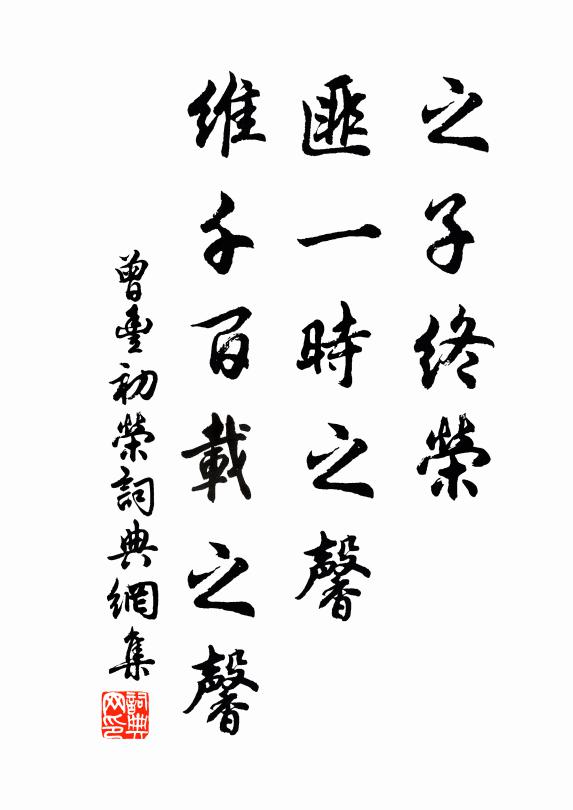 之子終榮
匪一時之馨
維千百載之馨
曾豐初榮詞典網集
詞典網印